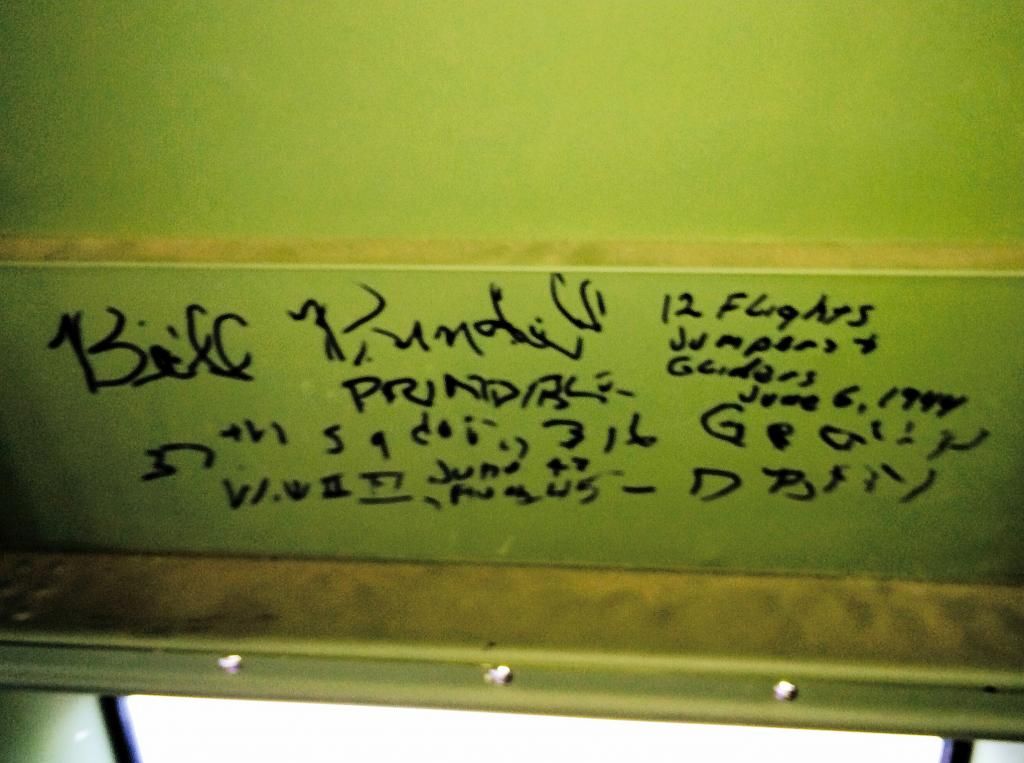 Bill Prindible
PRINDIBLE
12 Flights
Jumpers +
Gliders
June 6, 1944
5th Sqdn., 316 Group
W.W II June 43
Aug 45 - D DAY